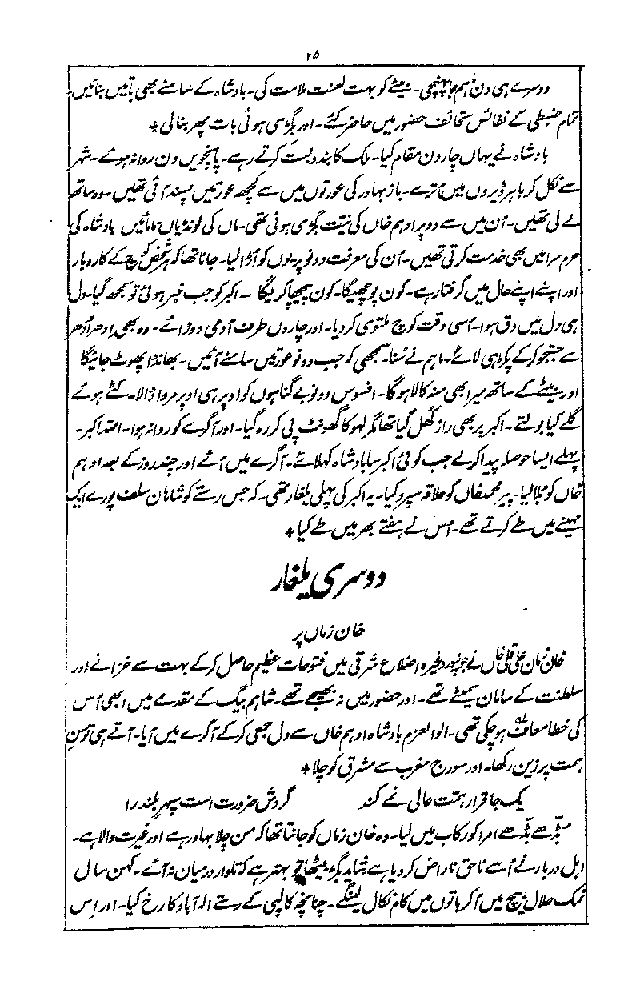 ۲۵
دوسرے ہی دن ماہم جا پہنچی۔ بیٹے کو بہت لعنت ملامت کی۔ بادشاہ کے سامنے بھی باتیں بنائیں
تمام ضبطی کے نفائس تحائف حضور میں حاضر کئے۔ اور بگڑی ہوئی بات پھر بنالی *
بادشاہ نے یہاں چار دن مقام کیا۔ ملک کا بندوبست کرتے رہے۔ پانچویں دن روانہ ہوئے۔ شہر
سے نکل کر باہر ڈیروں میں اُترے۔ بازبہادر کی عورتوں میں سے کچھ عورتیں پسند آئی تھیں۔ وہ ساتھ
لے لی تھیں۔ اُن میں سے دو پر ادہم خاں کی نیت بگڑی ہوئی تھی۔ ماں کی لونڈیاں مامائیں بادشاہ کی
حرم سرا میں بھی خدمت کرتی تھیں۔ اُن کی معرفت دونو پریوں کو اُڑا لیا۔ جانا تھا کہ ہر شخص کوچ کے کاروبار
اور اپنے اپنے حال میں گرفتار ہے۔ کون پوچھیگا۔ کون پیچھا کریگا۔ اکبر کو جب خبر ہوئی تو سمجھ گیا۔ دل
ہی دل میں دق ہوا۔ اُسی وقت کوچ ملتوی کر دیا۔ اور چاروں طرف آدمی دوڑائے۔ وہ بھی ادھر اُدھر
سے جستجو کر کے پکڑ ہی لائے۔ ماہم نے سُنا۔ سمجھی کہ جب دونو عورتیں سامنے آئیں۔ بھانڈا پھوٹ جائیگا
اور بیٹے کے ساتھ میرا بھی منہ کالا ہوگا۔ افسوس دونو بے گناہوں کو اوپر ہی اوپر مروا ڈالا۔ کٹے ہوئے
گلے کیا بولتے۔ اکبر پر بھی راز کھل گیا تھا مگر لہو کا گھونٹ پی کر رہ گیا۔ اور آگرے کو روانہ ہوا۔ اللہ اکبر۔
پہلے ایسا حوصلہ پیدا کرلے جب کوئی اکبر سا بادشاہ کہلائے۔ آگرے میں آئے اور چند روز کے بعد ادہم
خاں کو بُلا لیا۔ پیر محمد خاں کو علاقہ سپرد کیا۔ یہ اکبر کی پہلی یلغار تھی۔ کہ جس رستے کو شاہان سلف پورے ایک
مہینے میں طے کرتے تھے۔ اُس نے ہفتے بھر میں طے کیا *
دوسری یلغار
خان زماں پر
خان زمان علی قلی خاں نے جونپور وغیرہ اضلاع شرقی میں فتوحات عظیم حاصل کرکے بہت سے خزانے اور
سلطنت کے سامان سمیٹے تھے۔ اور حضور میں نہ بھیجے تھے۔ شاہم بیگ کے مقدمے میں ابھی اُس
کی خطا معاف ہو چکی تھی۔ الوالعزم بادشاہ ادہم خاں سے دل جمعی کر کے آگرے میں آیا۔ آتے ہی توسن
ہمت پر زین رکھا۔ اور سورج مغرب سے مشرق کو چلا *
یک جا قرار ہمت عالی نے کند گردش ضرورت است سپہر بلند را
بڈھے بڈھے امرا کو رکاب میں لیا۔ وہ خان زماں کو جانتا تھا کہ من چلا بہادر ہے اور غیرت والا ہے۔
اہل دربار نے اُسے ناحق ناراض کر دیا ہے شاید بگڑ بیٹھا تو بہتر ہے کہ تلوار درمیان نہ آئے۔ کہن سال
نمک حلال بیچ میں آکر باتوں میں کام نکال لینگے۔ چنانچہ کالپی کے رستے الہ آباد کا رخ کیا۔ اور اس